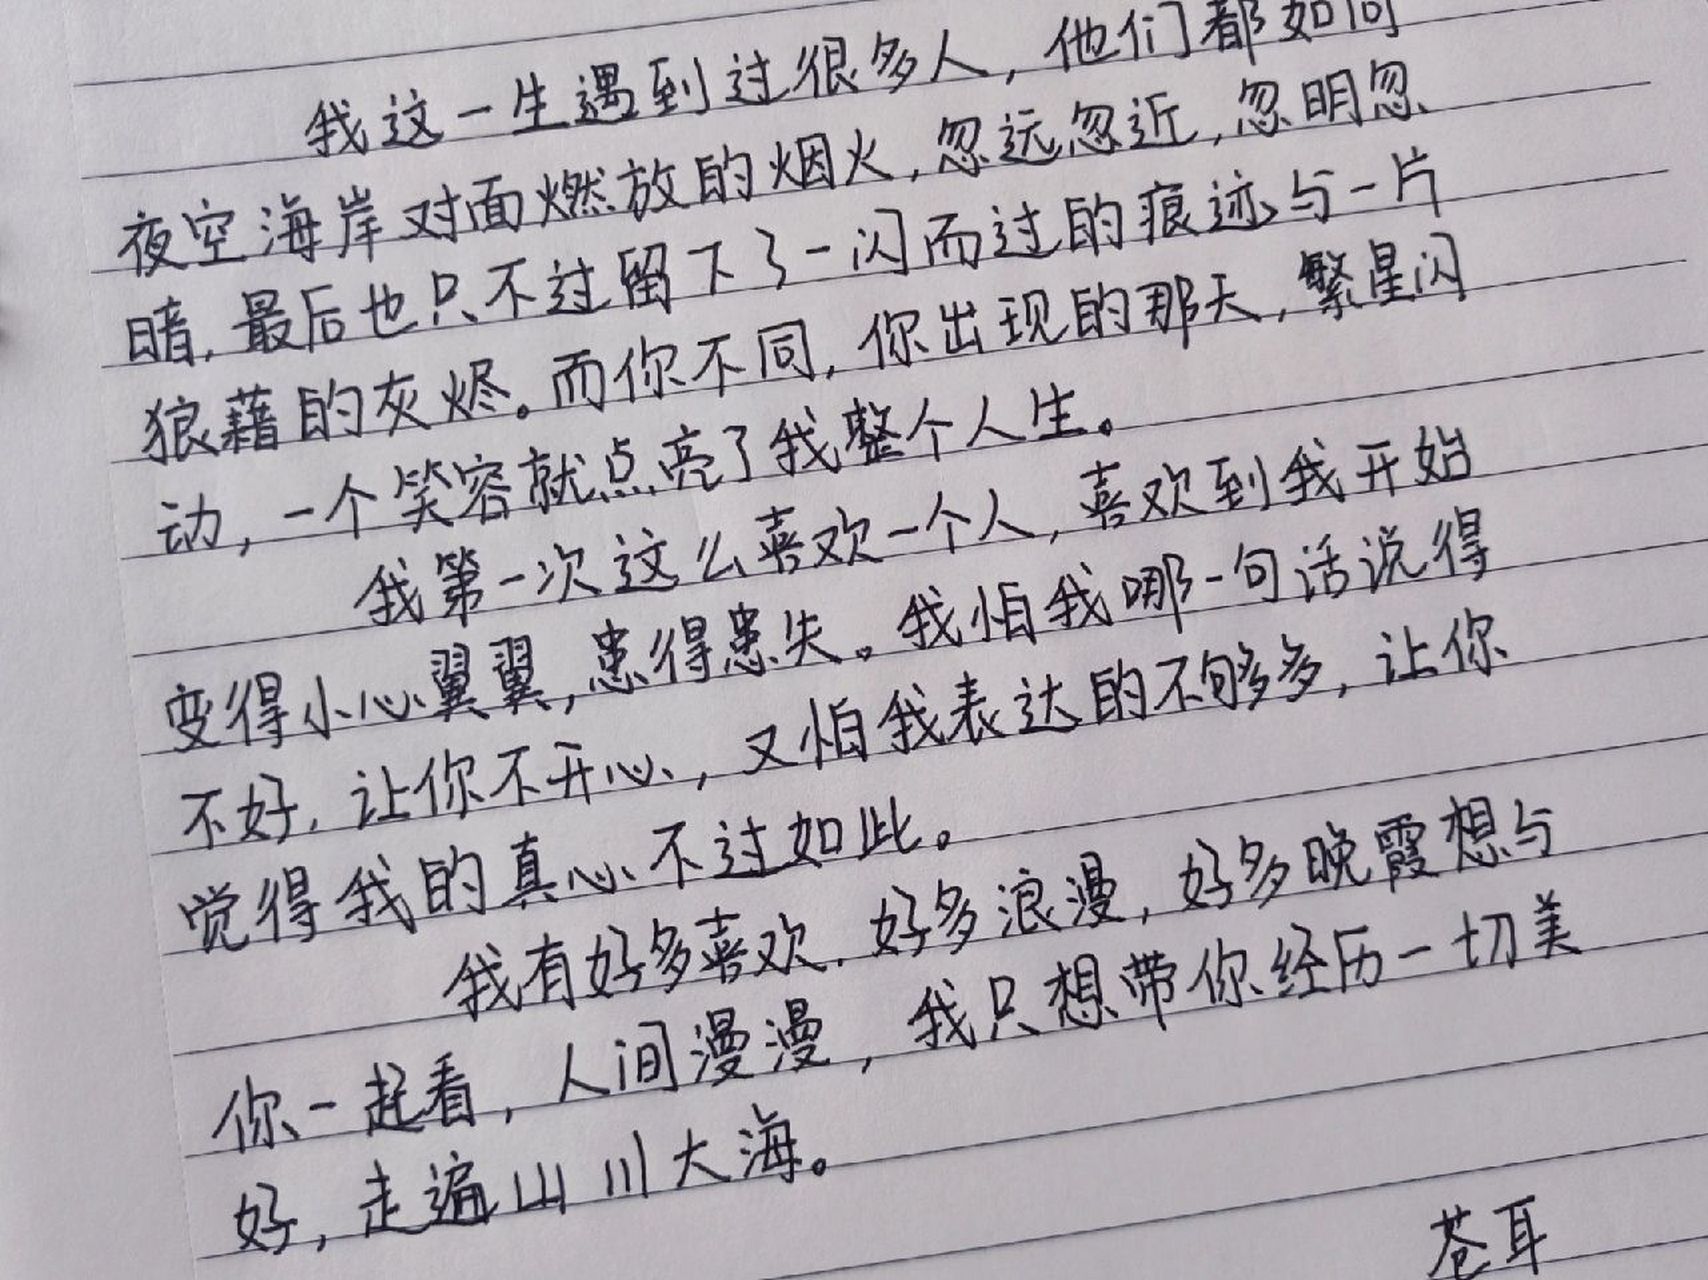 我这一生遇到过很多人，他们都如同
夜空海岸对面燃放的烟火，忽远忽近，忽明忽
暗，最后也只不过留下了一闪而过的痕迹与一片
狼藉的灰烬。而你不同，你出现的那天，繁星闪
动，一个笑容就点亮了我整个人生。
我第一次这么喜欢一个人，喜欢到我开始
变得小心翼翼，患得患失。我怕我哪一句话说得
不好，让你不开心，又怕我表达的不够多，让你
觉得我的真心不过如此。
我有好多喜欢，好多浪漫，好多晚霞想与
你一起看，人间漫漫，我只想带你经历一切美
好，走遍山川大海。
苍耳